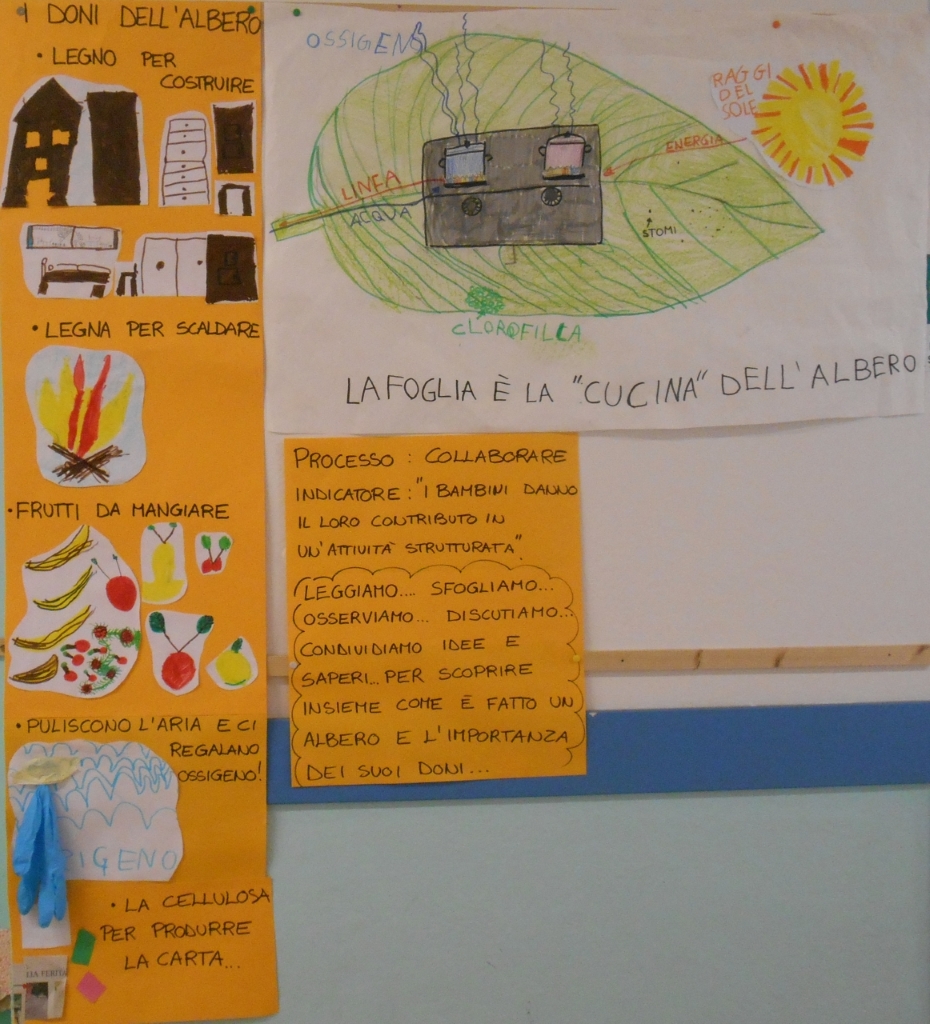 I DONI DELL'ALBERO
• LEGNO PER
COSTRUIRE
• LEGNA PER SCALDARE
• FRUTTI DA MANGIARE
• PULISCONO L'ARIA E CI
REGALANO
OSSIGENO!
IGENO
• LA CELLULOSA
PER PRODURRE
LA CARTA...
OSSIGENO
RAGGI
DEL
SOLE
ENERGIA
LINEA
ACQUA
STOMI
CLOROFILLA
LA FOGLIA È LA "CUCINA" DELL'ALBERO
PROCESSO : COLLABORARE
INDICATORE : "I BAMBINI DANNO
IL LORO CONTRIBUTO IN
UN'ATTIVITÀ STRUTTURATA".
LEGGIAMO.... SFOGLIAMO...
OSSERVIAMO... DISCUTIAMO...
CONDIVIDIAMO IDEE E
SAPERI... PER SCOPRIRE
INSIEME COME È FATTO UN
ALBERO E L'IMPORTANZA
DEI SUOI DONI...